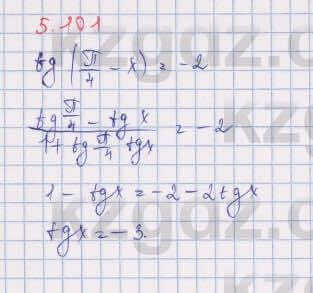 5.101
tg (π/4 - x) = -2
(tg π/4 - tg x) / (1 + tg π/4 tgx) = -2
1 - tgx = -2 - 2tgx
tgx = -3.
kzgdz.com